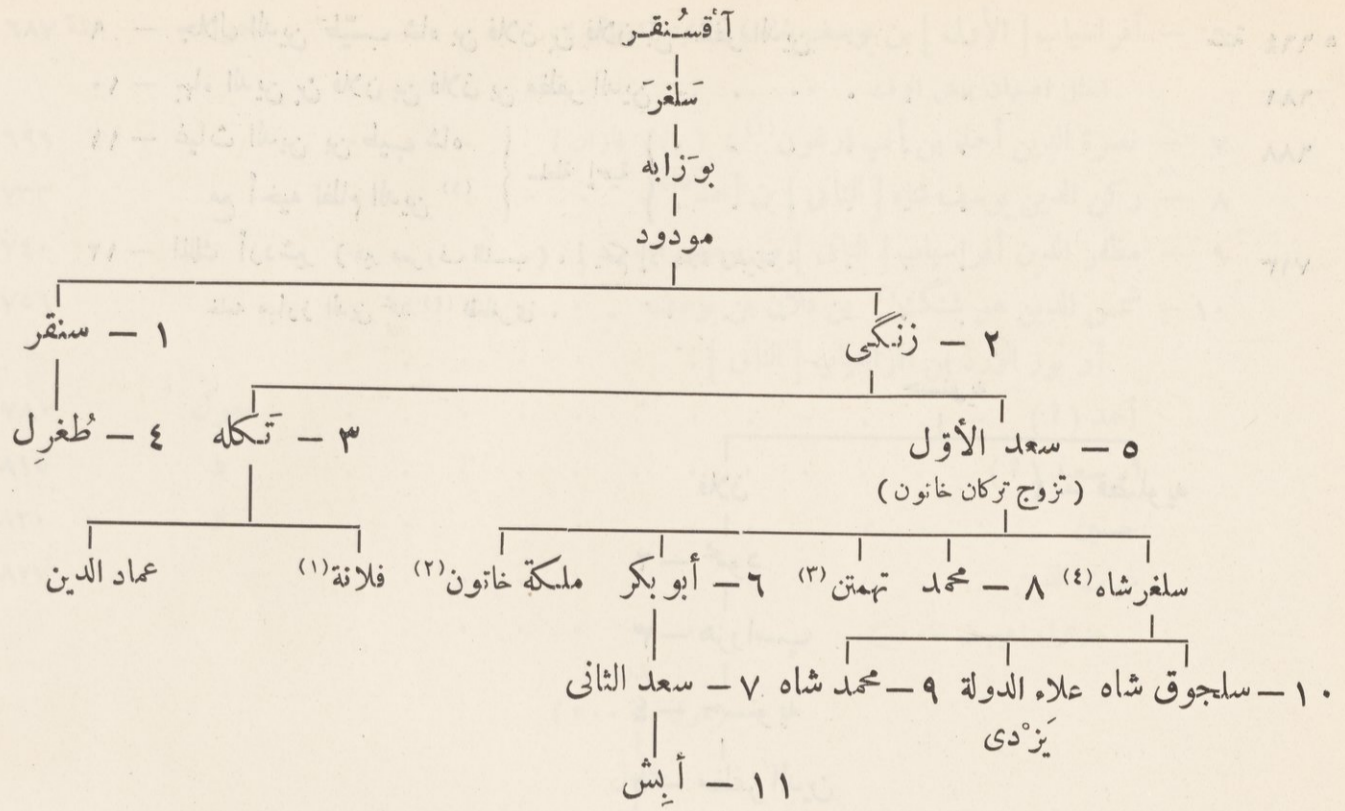 آقسُنقر
سَلغرَ
بوزَابه
مودود
٢ – زنگى ١ – سنقر
٥ – سعد الأوّل ٣ – تَكله ٤ – طُغرِل
(تزوج تركان خاتون)
سلغرشاه(٤) ٨ – محمد تهمتن(٣) ٦ – أبو بكر ملكة خاتون(٢) فلانة(١) عماد الدين
١٠ – سلجوق شاه علاء الدولة ٩ – محمد شاه ٧ – سعد الثانى
يَزْدى
١١ – أَبِش